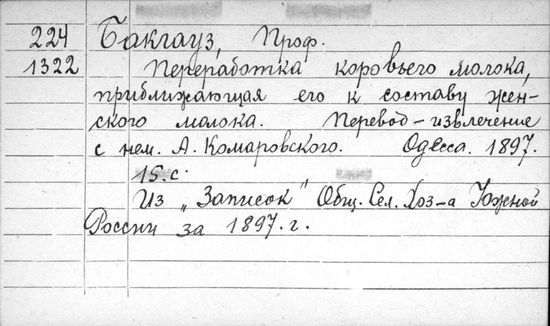 224 Бакгауз, Проф.
1322 Переработка коровьего молока,
приближающая его к составу жен-
ского молока. Перевод-извлечение
с нем. А. Комаровского. Одесса. 1897.
15 с.
Из „Записок" Общ. Сел. Хоз-а Южной
России за 1897. г.